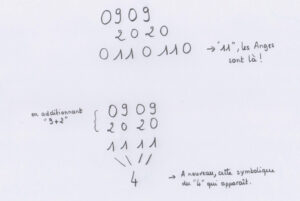 0909
2020
0110110 → "11", les Anges
sont là !
en additionnant
"9+2"
0909
2020
1111
4
→ A nouveau, cette symbolique
du "4" qui apparaît.